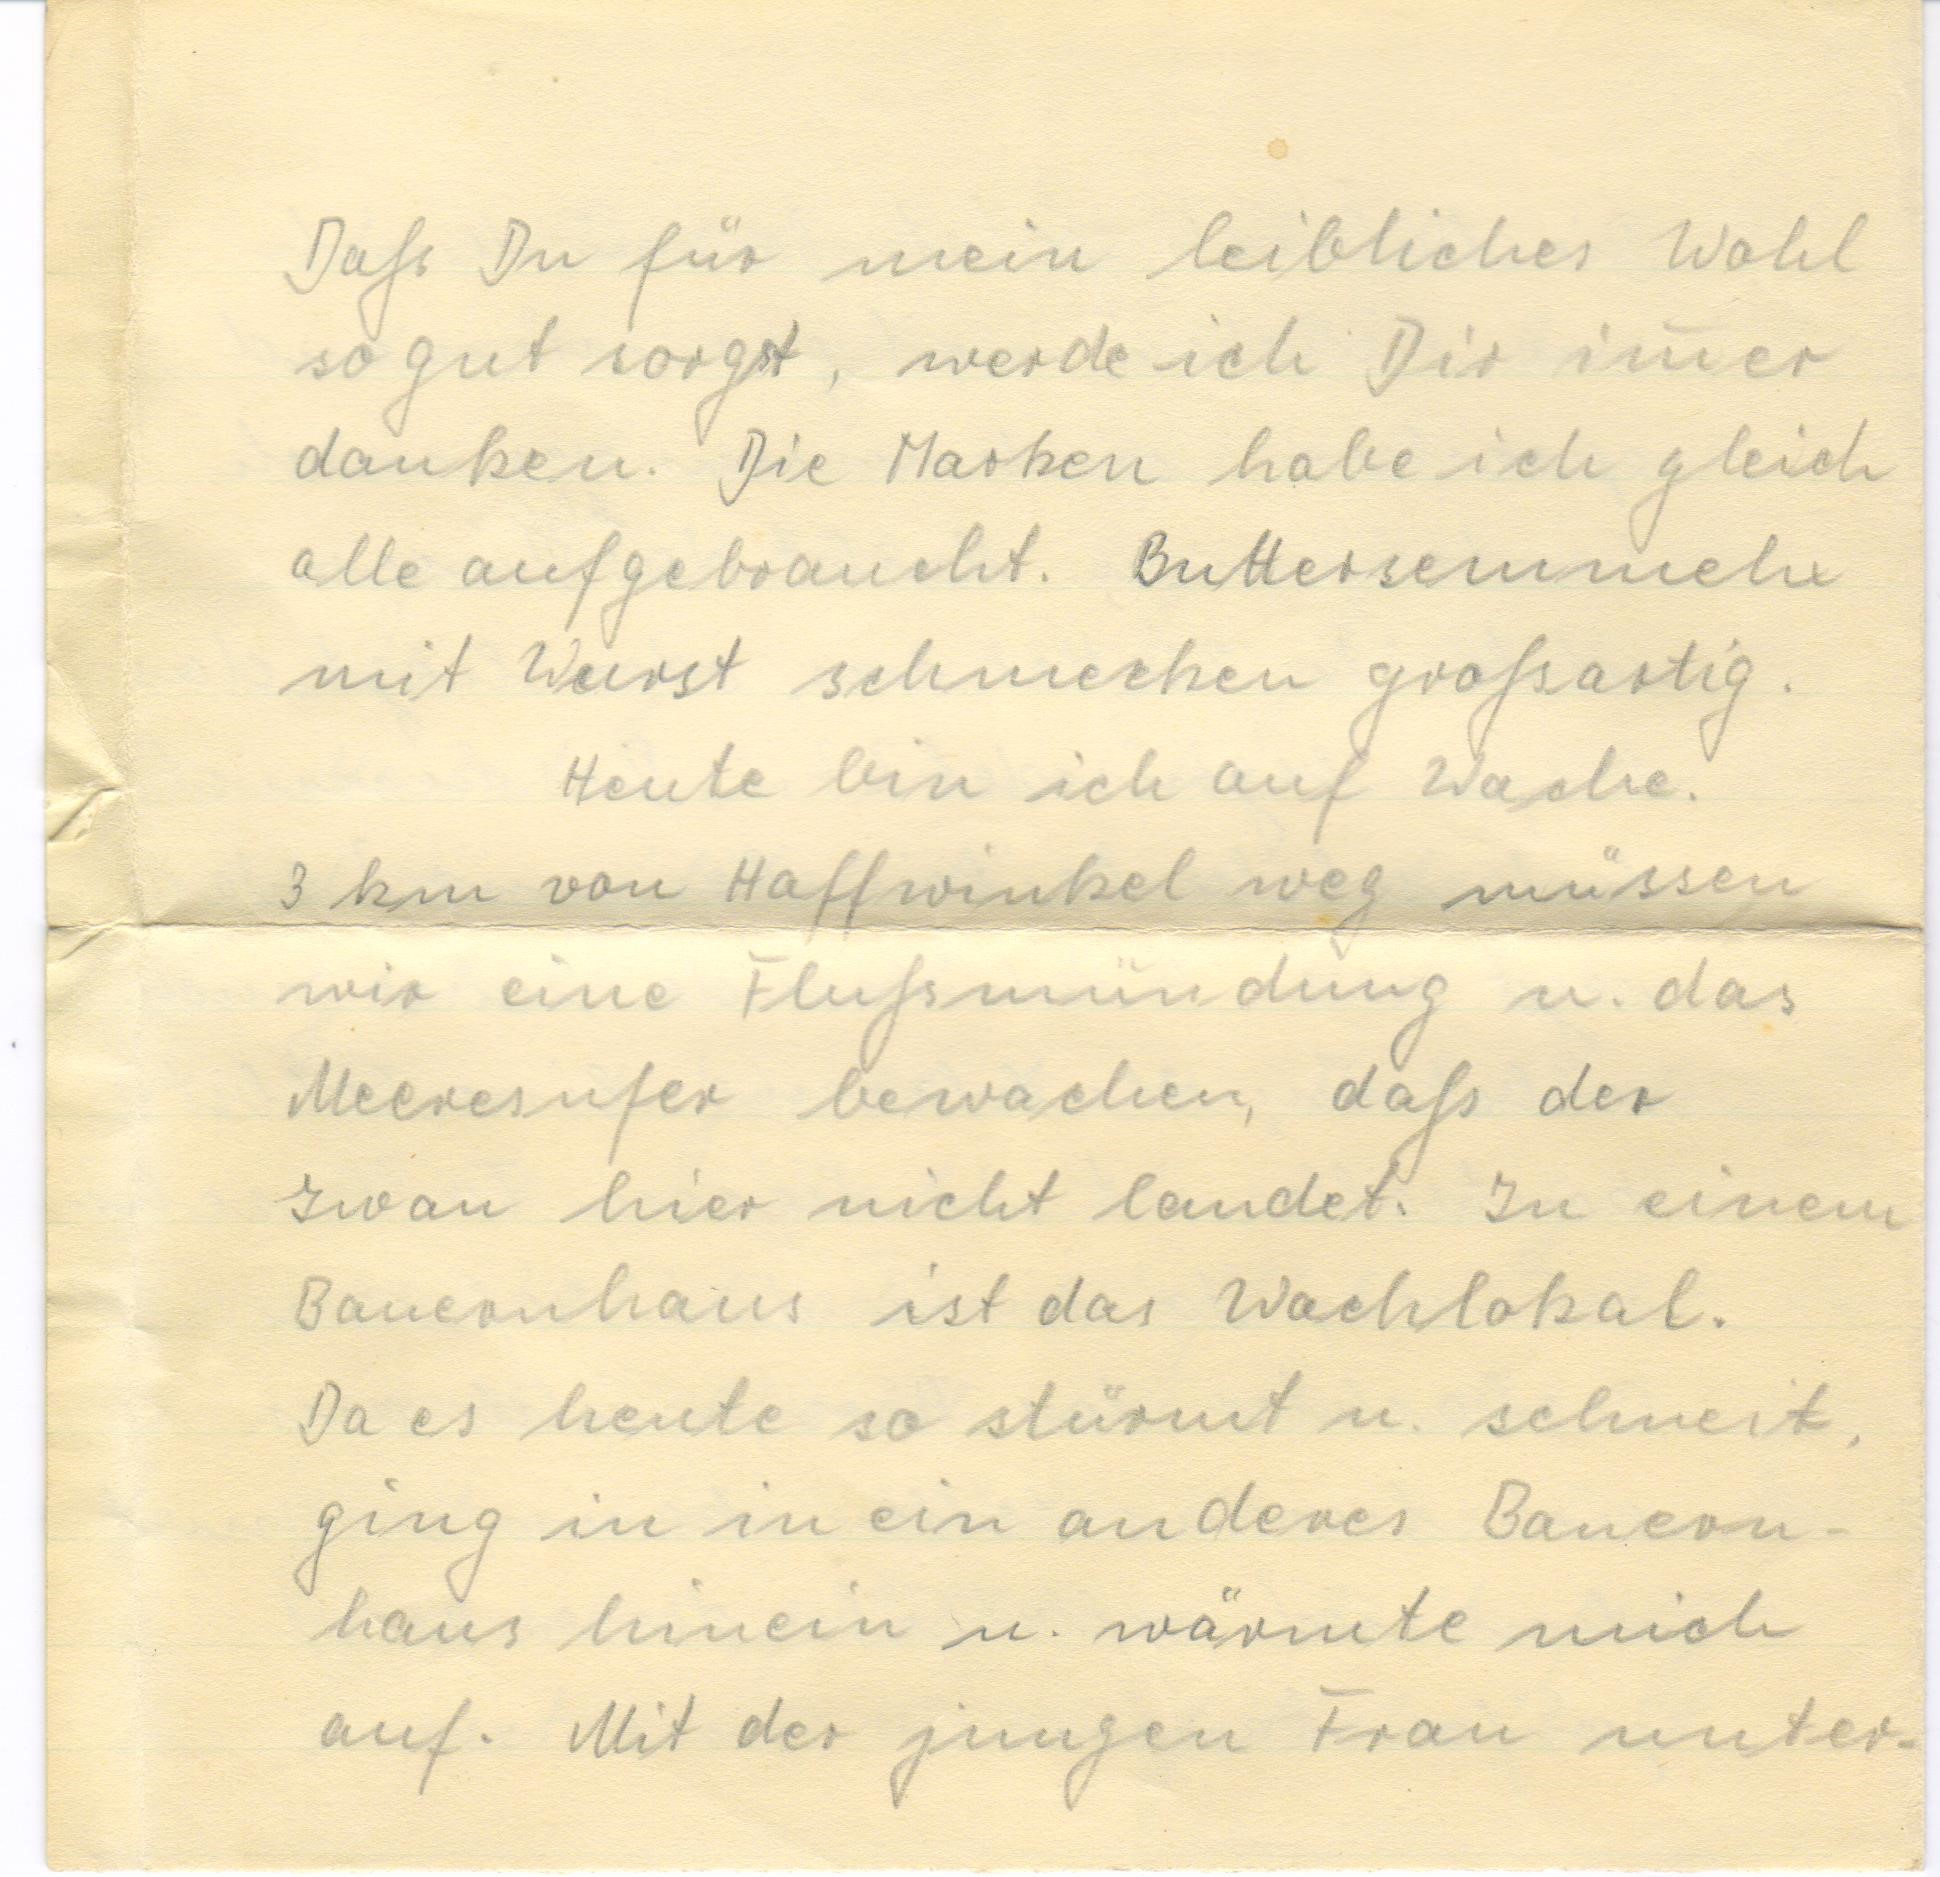 Daß Du für mein leibliches Wohl
so gut sorgst, werde ich Dir im̄er
danken. Die Marken habe ich gleich
alle aufgebraucht. Buttersemmeln
mit Wurst schmecken großartig.
Heute bin ich auf Wache.
3 km von Haffwinkel weg müssen
wir eine Flußmündung u. das
Meeresufer bewachen, daß der
Iwan hier nicht landet. In einem
Bauernhaus ist das Wachlokal.
Da es heute so stürmt u. schneit,
ging in in ein anderes Bauern-
haus hinein u. wärmte mich
auf. Mit der jungen Frau unter-